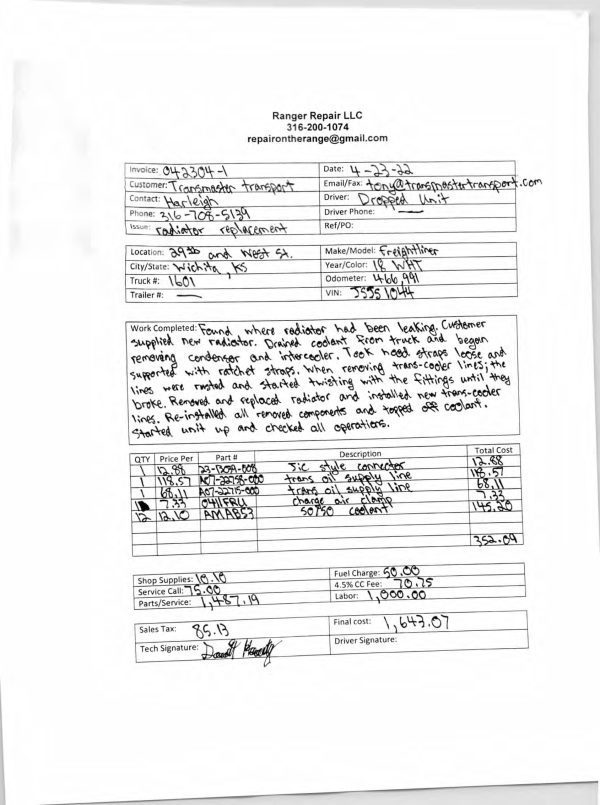 Ranger Repair LLC
316-200-1074
repairontherange@gmail.com
Invoice: 042304-1 Date: 4-23-22
Customer: Transmaster transport Email/Fax: tony@transmastertransport.com
Contact: Harleigh Driver: Dropped Unit
Phone: 316-708-5139 Driver Phone: —
Issue: radiator replacement Ref/PO:
Location: 29th and West St. Make/Model: Freightliner
City/State: Wichita, KS Year/Color: 18 WHT
Truck #: 1601 Odometer: 466,991
Trailer #: — VIN: JS5S1044
Work Completed: Found where radiator had been leaking. Customer
supplied new radiator. Drained coolant from truck and began
removing condenser and intercooler. Took hood straps loose and
supported with ratchet straps. When removing trans-cooler lines; the
lines were rusted and started twisting with the fittings until they
broke. Removed and replaced radiator and installed new trans-cooler
lines. Re-installed all removed components and topped off coolant.
Started unit up and checked all operations.
QTY Price Per Part # Description Total Cost
1 12.88 23-1309-808 Jic style connector 12.88
1 118.57 A07-22758-000 trans oil supply line 118.57
1 68.11 A07-22715-000 trans oil supply line 68.11
1 7.33 0411FRU charge air clamp 7.33
12 12.10 AMAB53 50/50 coolant 145.20
352.09
Shop Supplies: 10.10 Fuel Charge: 50.00
Service Call: 75.00 4.5% CC Fee: 70.75
Parts/Service: 1,487.19 Labor: 1,000.00
Sales Tax: 85.13 Final cost: 1,643.07
Tech Signature: Driver Signature: